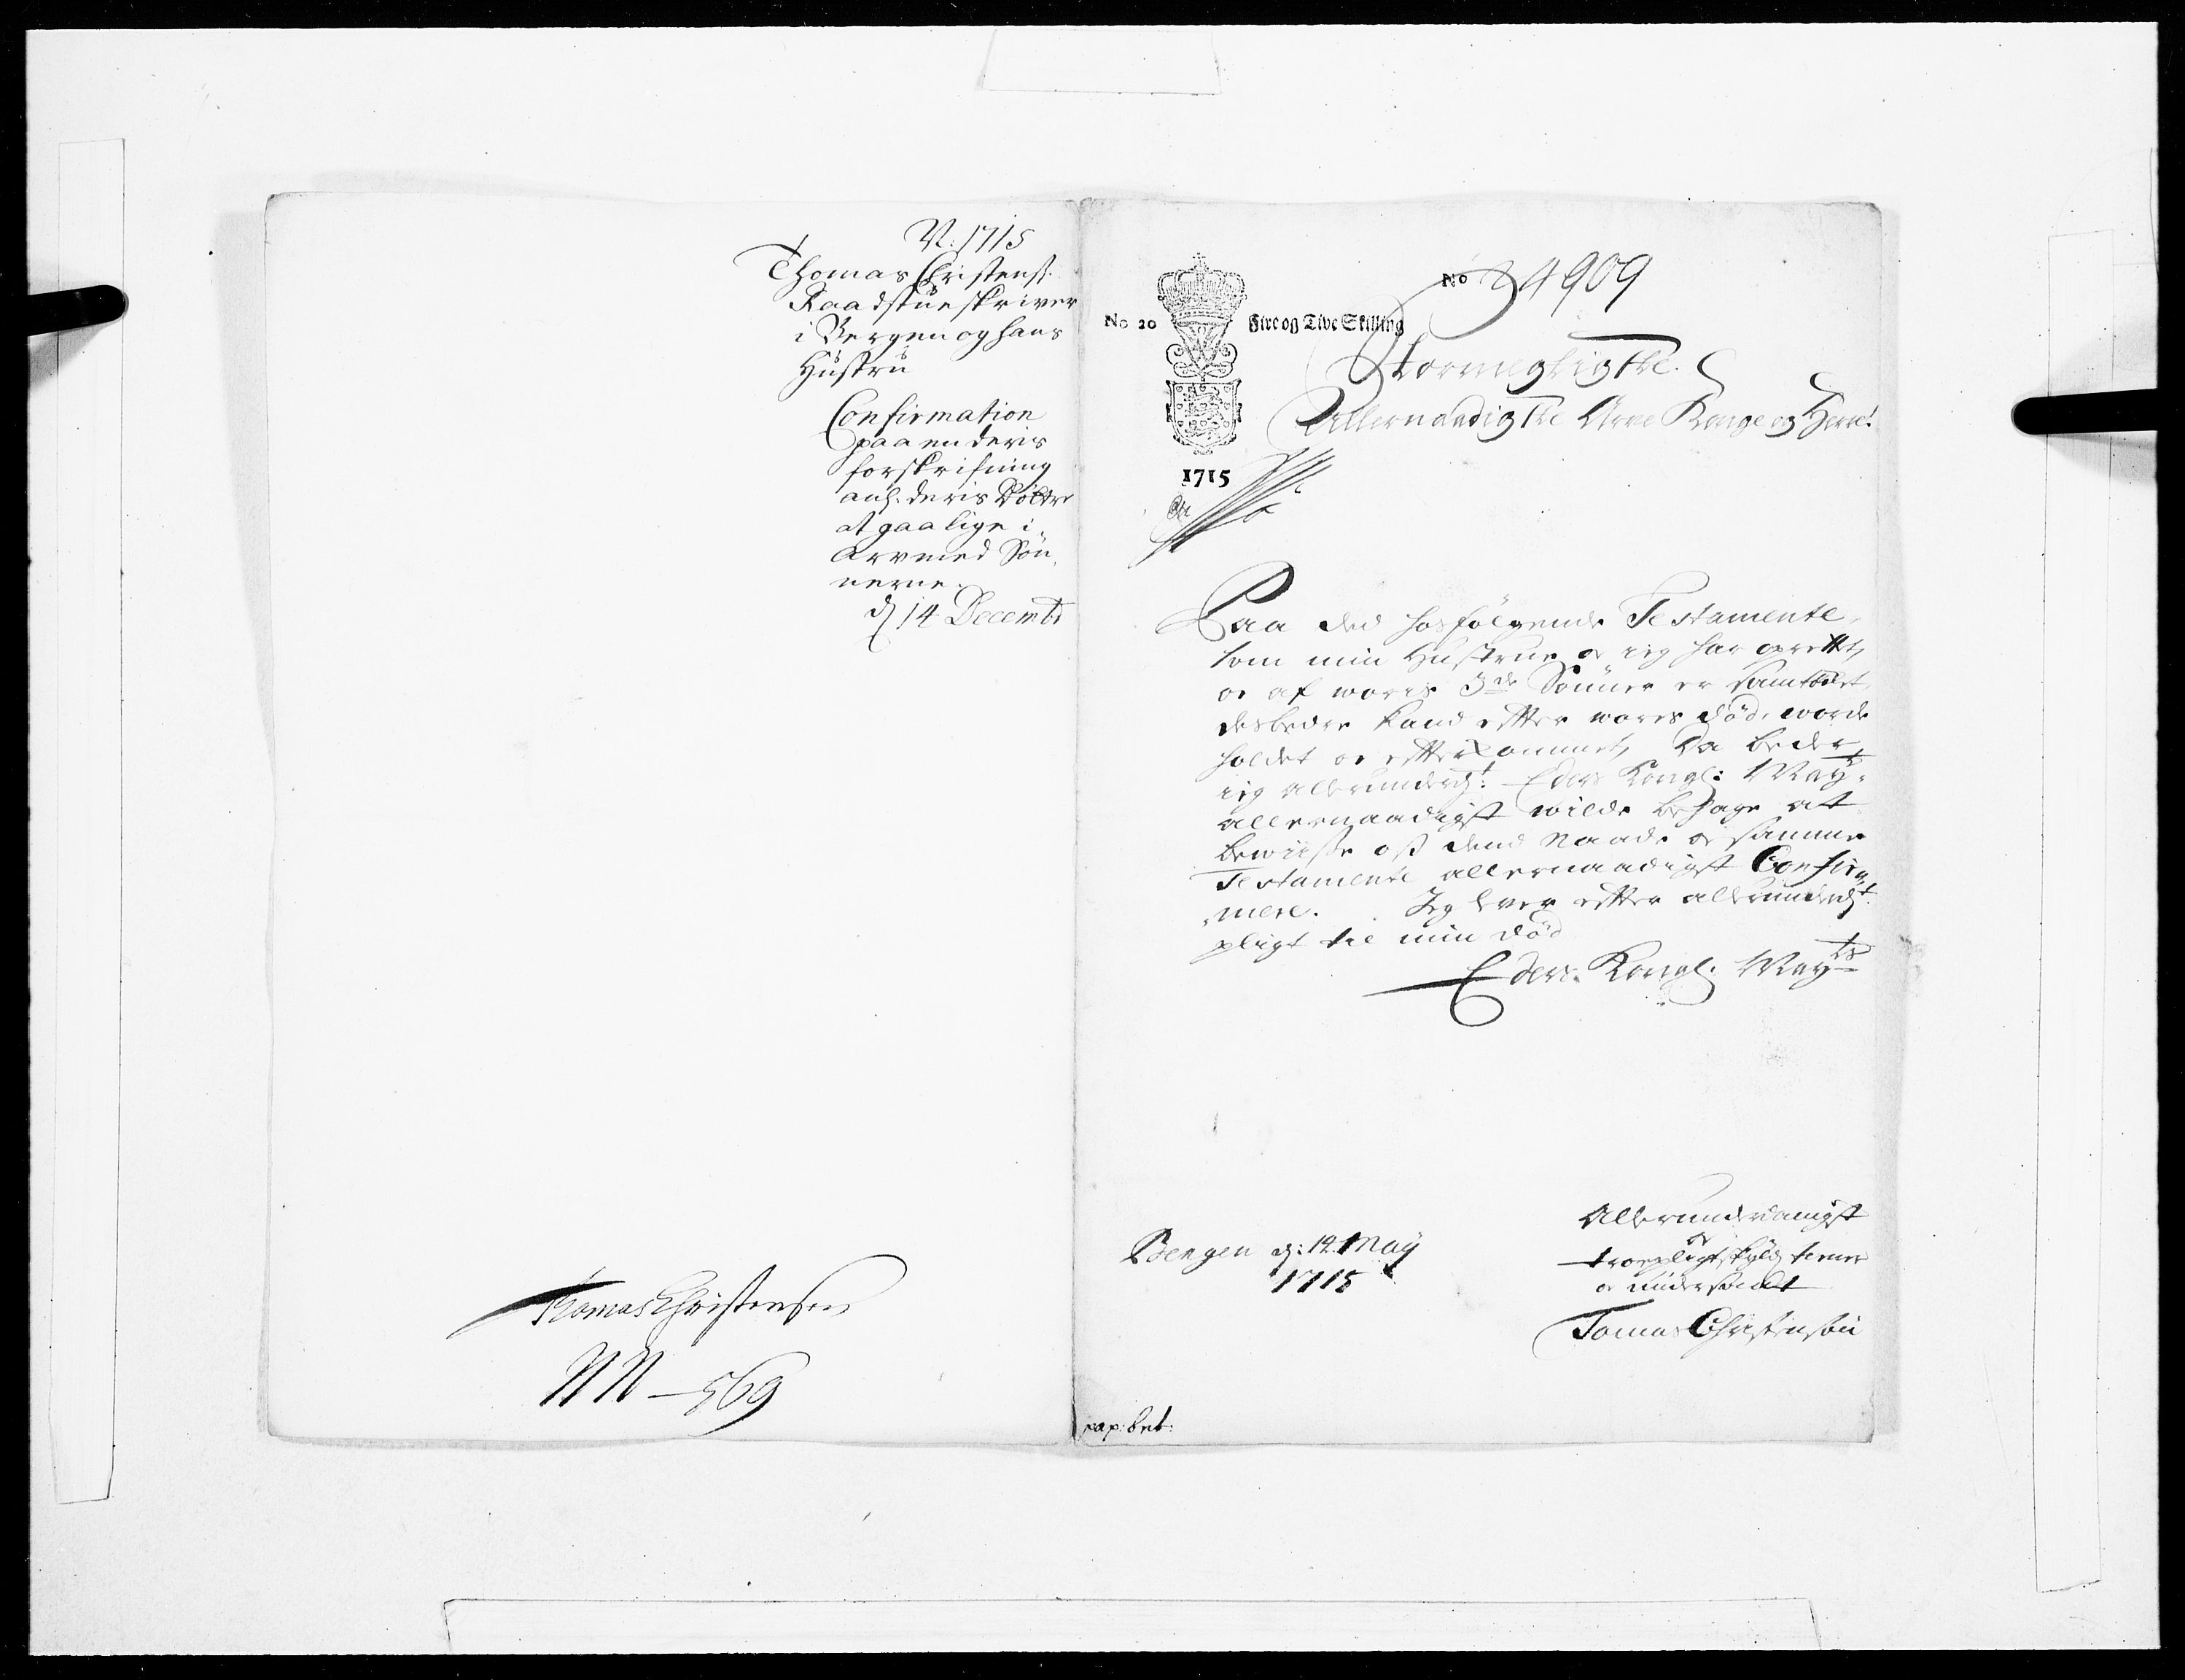 N: 1715
Thomas Christens:
Raadstueskriver
i Bergen og hans
Hustru
Confirmation
paa en deris
forskrifning
anl. deris Döttre
at gaa lige i
Arv med Sön,
nerne.
d 14 Decembr
Thomas Christensen
NN - 569
No 34909
No 20
Fire og Tive Skilling
1715
Stormegtigste
Allernaadigste Arve Konge og Herre!
Paa ded hosfölgende Testamente,
som min Hustrue og ieg har oprettet,
oc af woris 3de Sönner er samtöct,
desbedre kand efter woris död, worde
holdet oc efterkommet, Da beder
ieg allerunderdt: Eders Kongl: Mayt:
allernaadigst wilde behage at
bewiise os dend Naade oc samme
Testamente allernaadigst Confir,,
,,mere. Jeg lever efter allerunderdt:
pligt til min död
Eders Kongl: Mayts
Allerunderdanigst
oc
troepligtskyldig tiener
oc undersaat
Tomas Christensön
Bergen d: 12 Maÿ
1715
pap: bet: